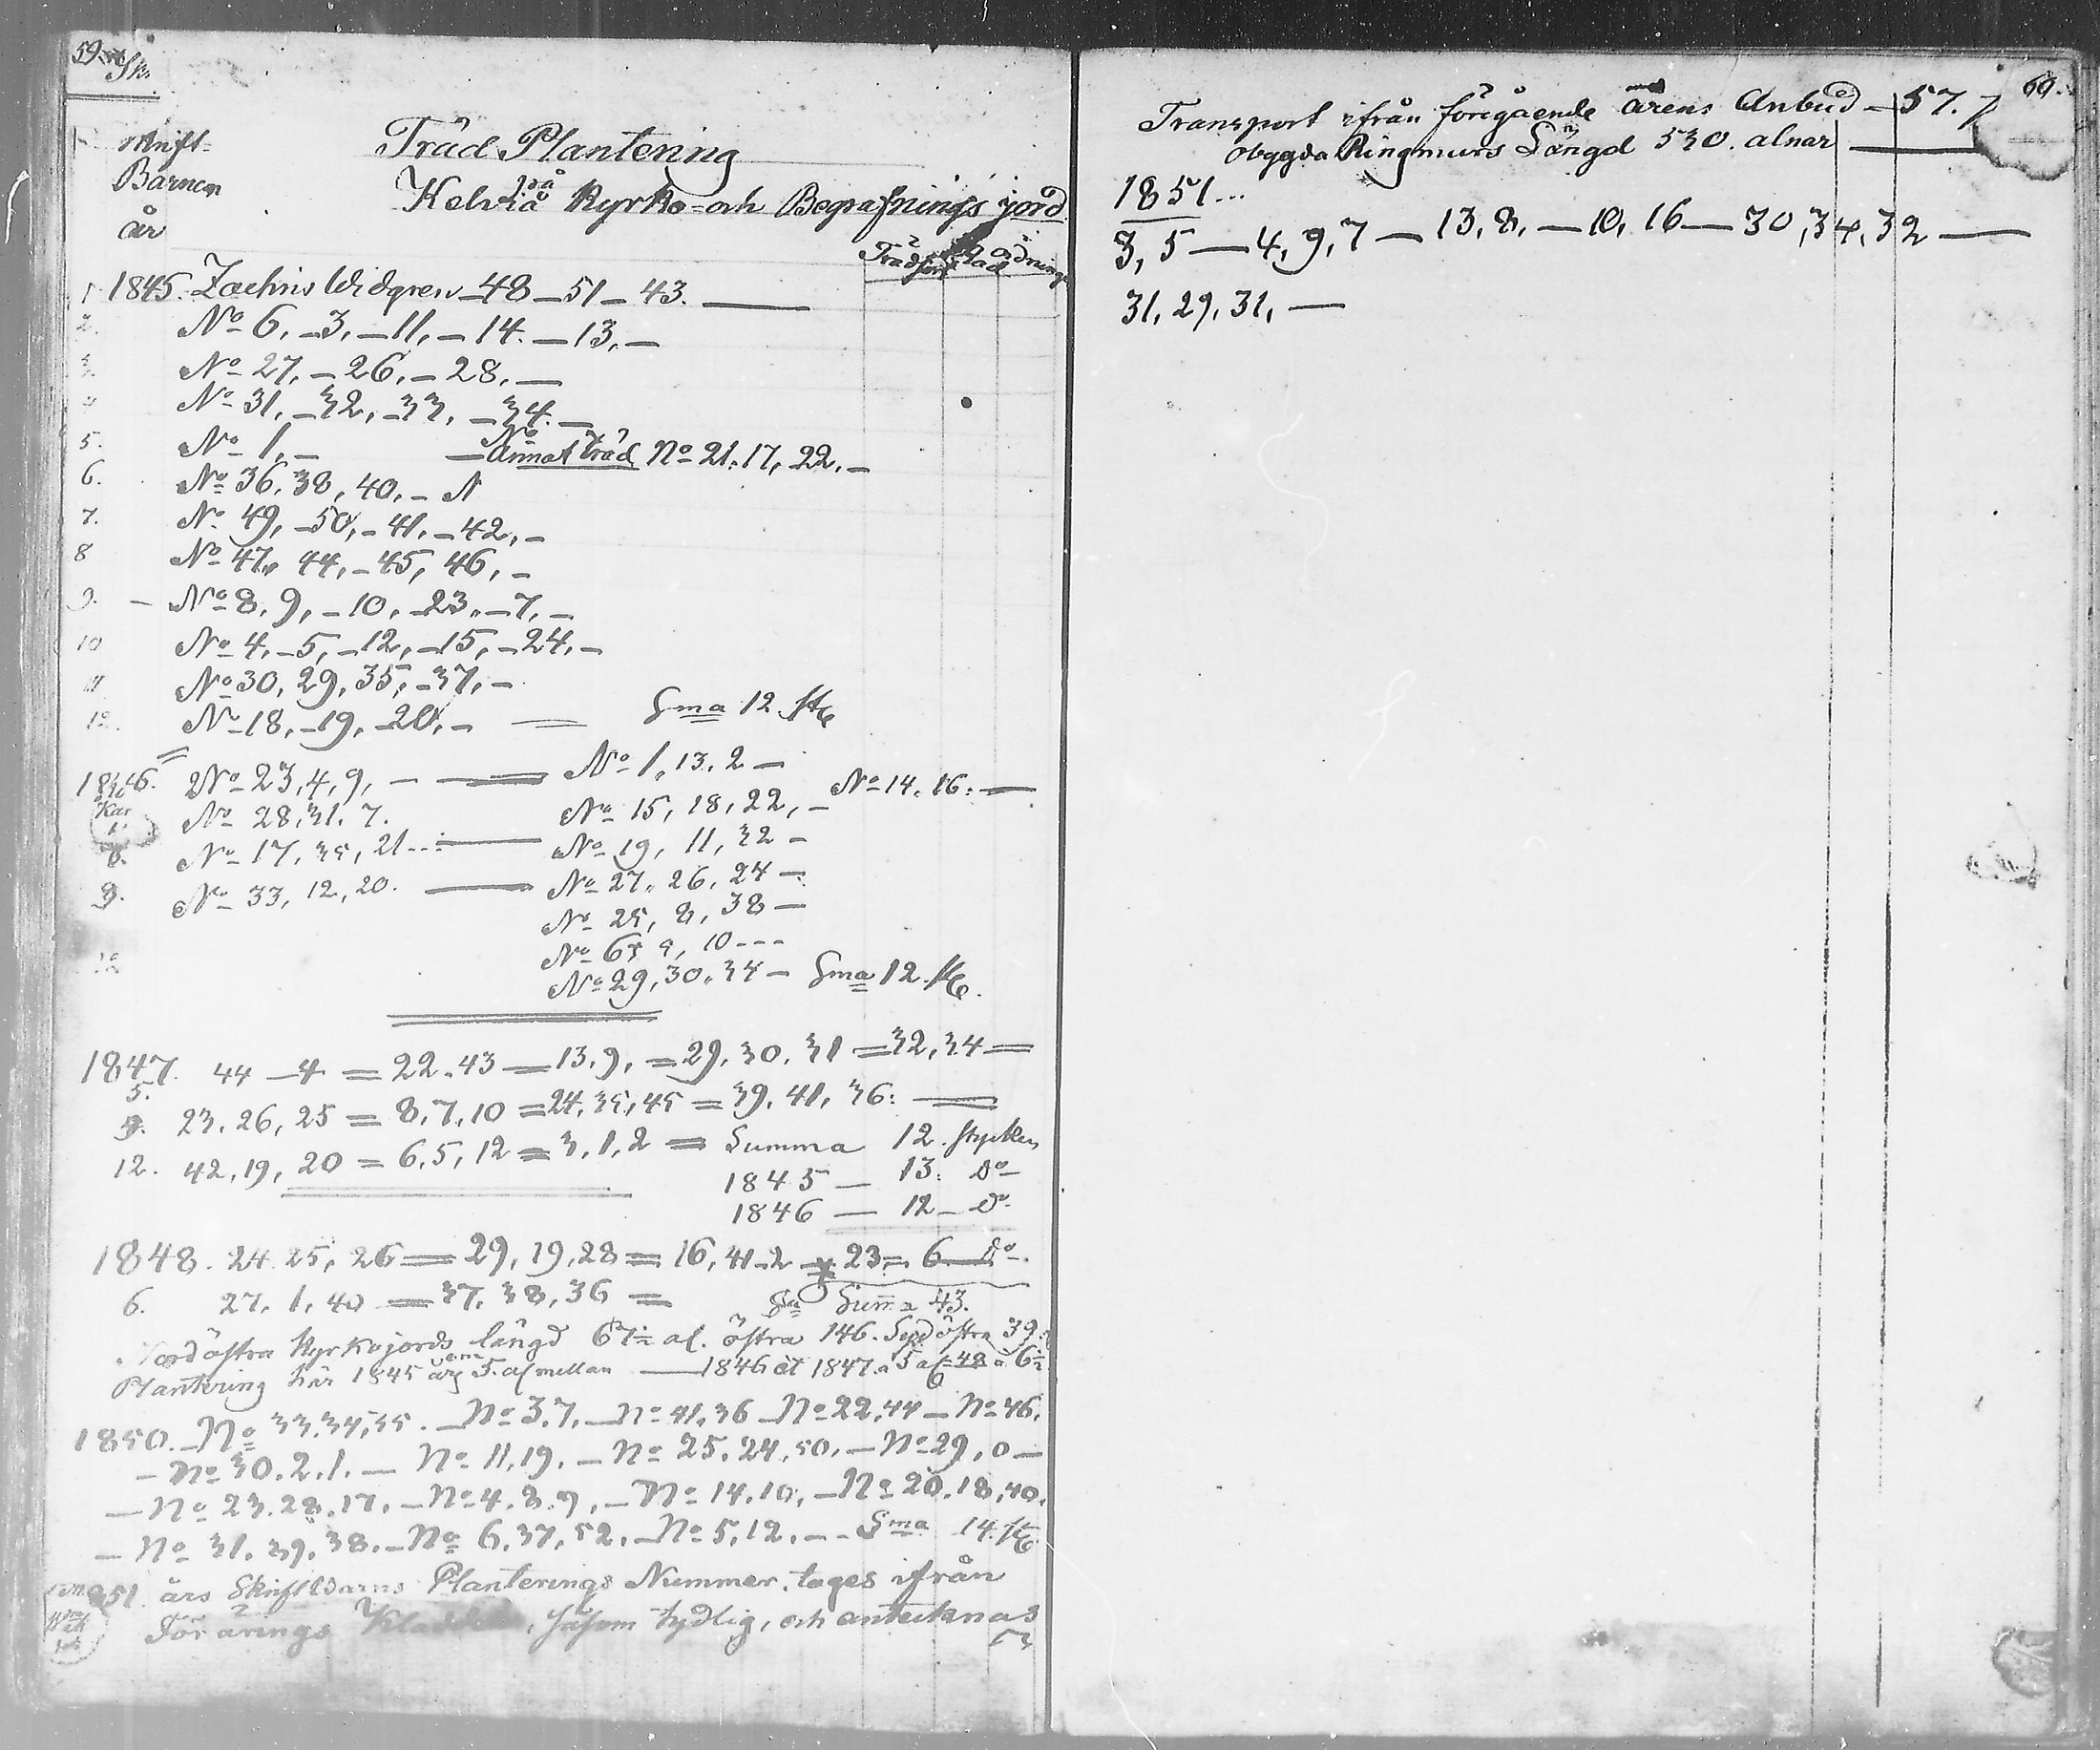 59.
Skrift-
Barnen
år
Träd Plantering
på
Kelviå Kyrko- och Begrafnings jord
1 1845. Zachris Widgren - 48 - 51 - 43. —
2. No 6, - 3, - 11, - 14. - 13, -
3. No 27, - 26, - 28, —
4 No 31, - 32, - 33, - 34. -
5. No 1, - — Annat träd No 21. 17, 22. -
6. No 36, 38, 40, - N
7. No 49, - 50, - 41, - 42, -
8 No 47, 44, - 45, 46, -
9. - No 8, 9, - 10, - 23, - 7, -
10 No 4, - 5, - 12, - 15, - 24, -
11 No 30, 29, 35, - 37, -
12. No 18, - 19, - 20, - = Sma 12 stk
1846. No 23, 4, 9, - — No 1, 13, 2 -
No 28, 31, 7. No 15, 18, 22, - No 14, 16: —
8. No 17, 35, 21... — No 19, 11, 32 -
9. No 33, 12, 20. — No 27, 26, 24 -
No 25, 8, 38 -
No 10 ---
12 No 29, 30, 34 - Sma 12 stk.
1847. 44 - 4 = 22. 43 — 13. 9, = 29, 30, 31 = 32, 34 =
5.
9. 23, 26, 25 = 8, 7, 10 = 24, 35, 45 = 39, 41, 36: =
12. 42, 19, 20 = 6, 5, 12 = 3, 1, 2 = Summa 12. stycken
1845 — 13: do
1846 — 12 - do
1848. 24. 25, 26 = 29, 19, 28 = 16, 41 - 2 - 23 - 6 — do
6. 27, 1, 40 = 37, 38, 36 = Summa 43.
Nordöstra Kyrkojords längd 67½ al. östra 146. Sydöstra 39
Plantering här 1845 års 5. al mellan — 1846 åt 1847 a 5 al 48 a 6½
1850. - No 33. 34, 35. - No 3. 7. - No 41. 36 - No 22, 44 - No 46.
- No 30. 2. 1. - No 11. 19. - No 25. 24, 50. - No 29, 0 -
- No 23. 28. 17. - No 4. 8. 9, - No 14. 10, - No 20. 18, 40.
- No 31. 39, 38. - No 6, 37, 52. - No 5, 12. - - Sma 14. stk
1851. års Skriftbarns Planterings Nummer. tages ifrån
Förårings Kladden, såsom tydlig, och antecknas
60.
Transport ifrån föregående årens Anbud - 57.
obygda Ringmurs Längd 530. alnar —
1851...
3, 5 — 4, 9, 7 — 13, 8, — 10, 16 — 30, 34, 32 —
31, 29, 31, —